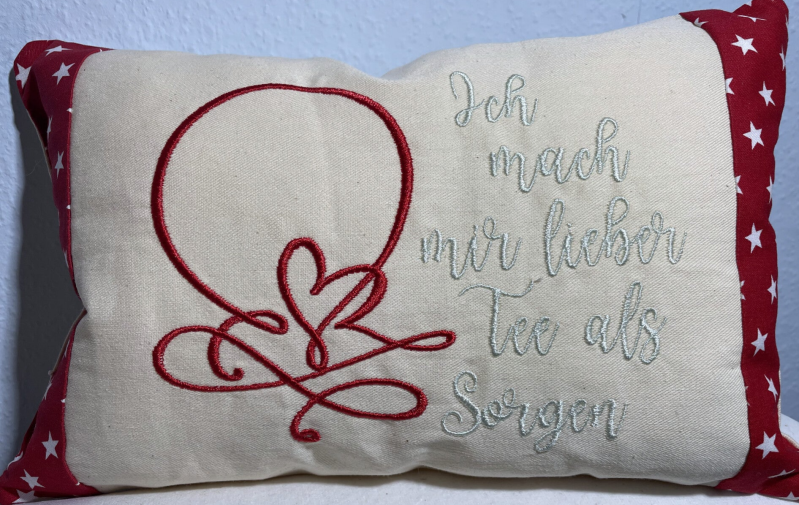 Ich
mach
mir lieber
Tee als
Sorgen